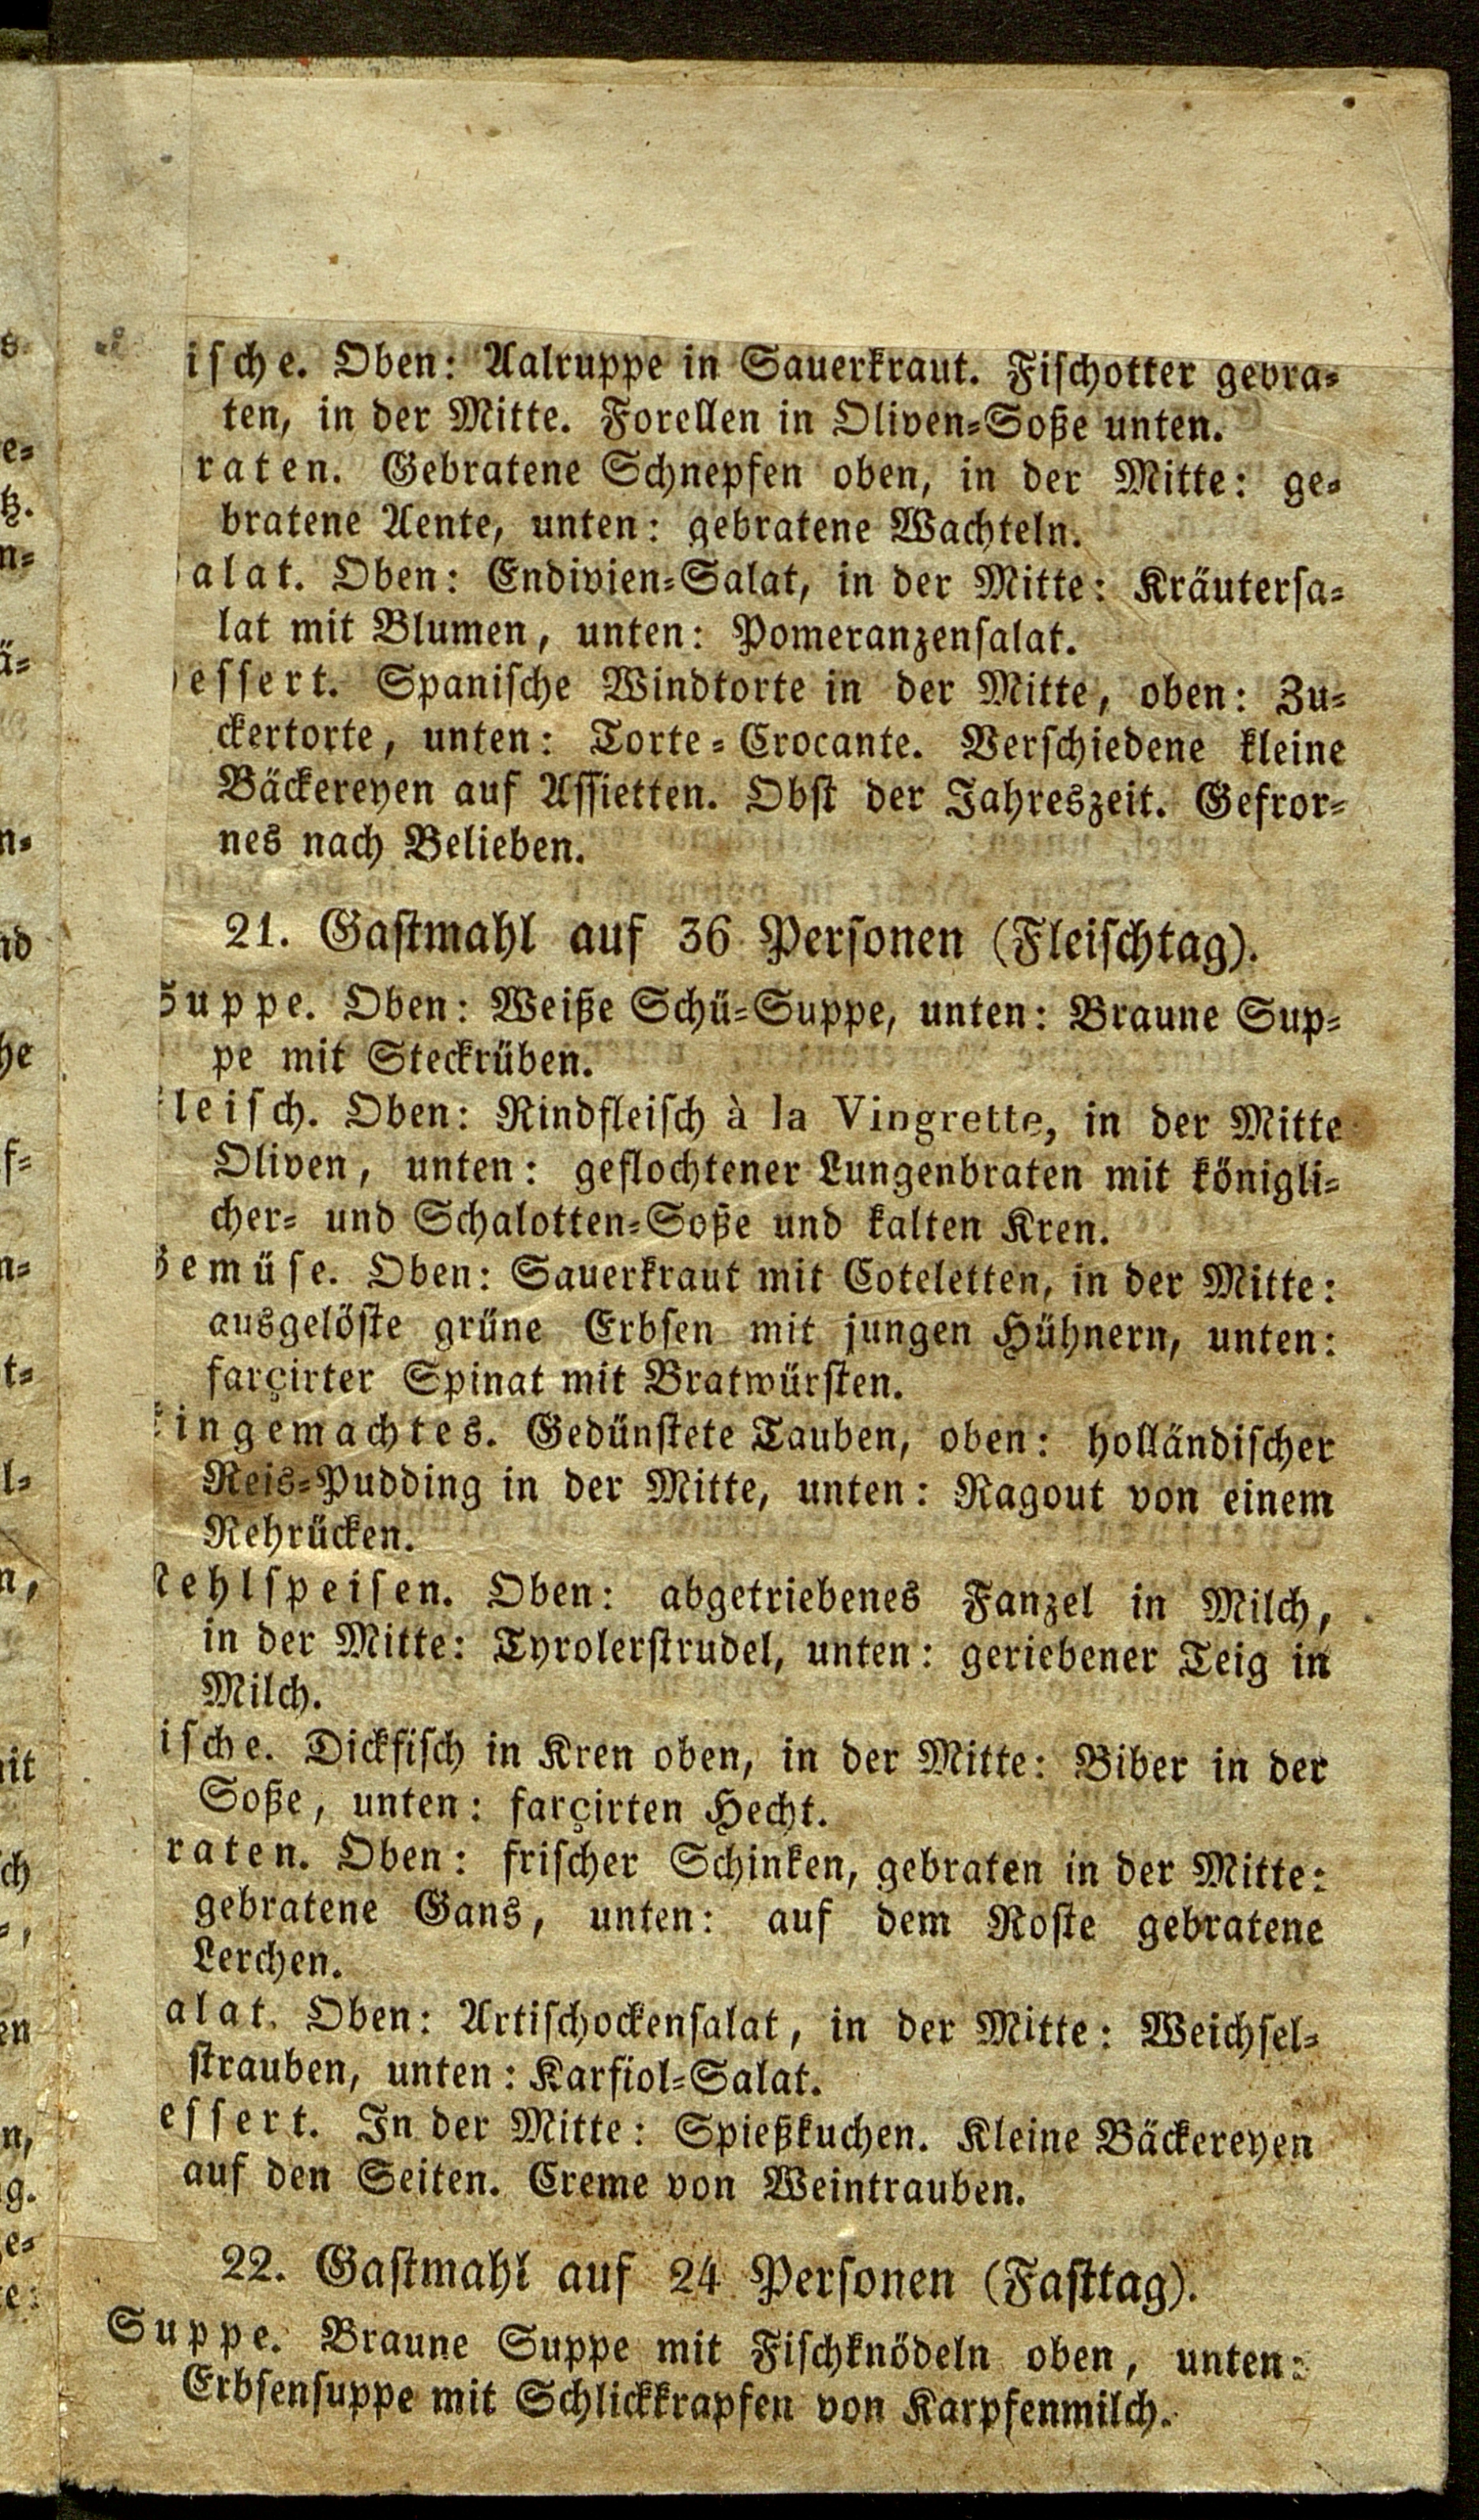 ische. Oben: Aalruppe in Sauerkraut. Fischotter gebra-
ten, in der Mitte. Forellen in Oliven-Soße unten.
raten. Gebratene Schnepfen oben, in der Mitte: ge-
bratene Aente, unten: gebratene Wachteln.
alat. Oben: Endivien-Salat, in der Mitte: Kräutersa-
lat mit Blumen, unten: Pomeranzensalat.
essert. Spanische Windtorte in der Mitte, oben: Zu-
ckertorte, unten: Torte-Crocante. Verschiedene kleine
Bäckereyen auf Assietten. Obst der Jahreszeit. Gefror-
nes nach Belieben.
21. Gastmahl auf 36 Personen (Fleischtag).
Suppe. Oben: Weiße Schü-Suppe, unten: Braune Sup-
pe mit Steckrüben.
leisch. Oben: Rindfleisch à la Vingrette, in der Mitte
Oliven, unten: geflochtener Lungenbraten mit königli-
cher- und Schalotten-Soße und kalten Kren.
Gemüse. Oben: Sauerkraut mit Coteletten, in der Mitte:
ausgelöste grüne Erbsen mit jungen Hühnern, unten:
farçirter Spinat mit Bratwürsten.
ingemachtes. Gedünstete Tauben, oben: holländischer
Reis-Pudding in der Mitte, unten: Ragout von einem
Rehrücken.
ehlspeisen. Oben: abgetriebenes Fanzel in Milch,
in der Mitte: Tyrolerstrudel, unten: geriebener Teig in
Milch.
ische. Dickfisch in Kren oben, in der Mitte: Biber in der
Soße, unten: farçirten Hecht.
raten. Oben: frischer Schinken, gebraten in der Mitte:
gebratene Gans, unten: auf dem Roste gebratene
Lerchen.
alat. Oben: Artischockensalat, in der Mitte: Weichsel-
strauben, unten: Karfiol-Salat.
essert. In der Mitte: Spießkuchen. Kleine Bäckereyen
auf den Seiten. Creme von Weintrauben.
22. Gastmahl auf 24 Personen (Fasttag).
Suppe. Braune Suppe mit Fischknödeln oben, unten:
Erbsensuppe mit Schlickkrapfen von Karpfenmilch.